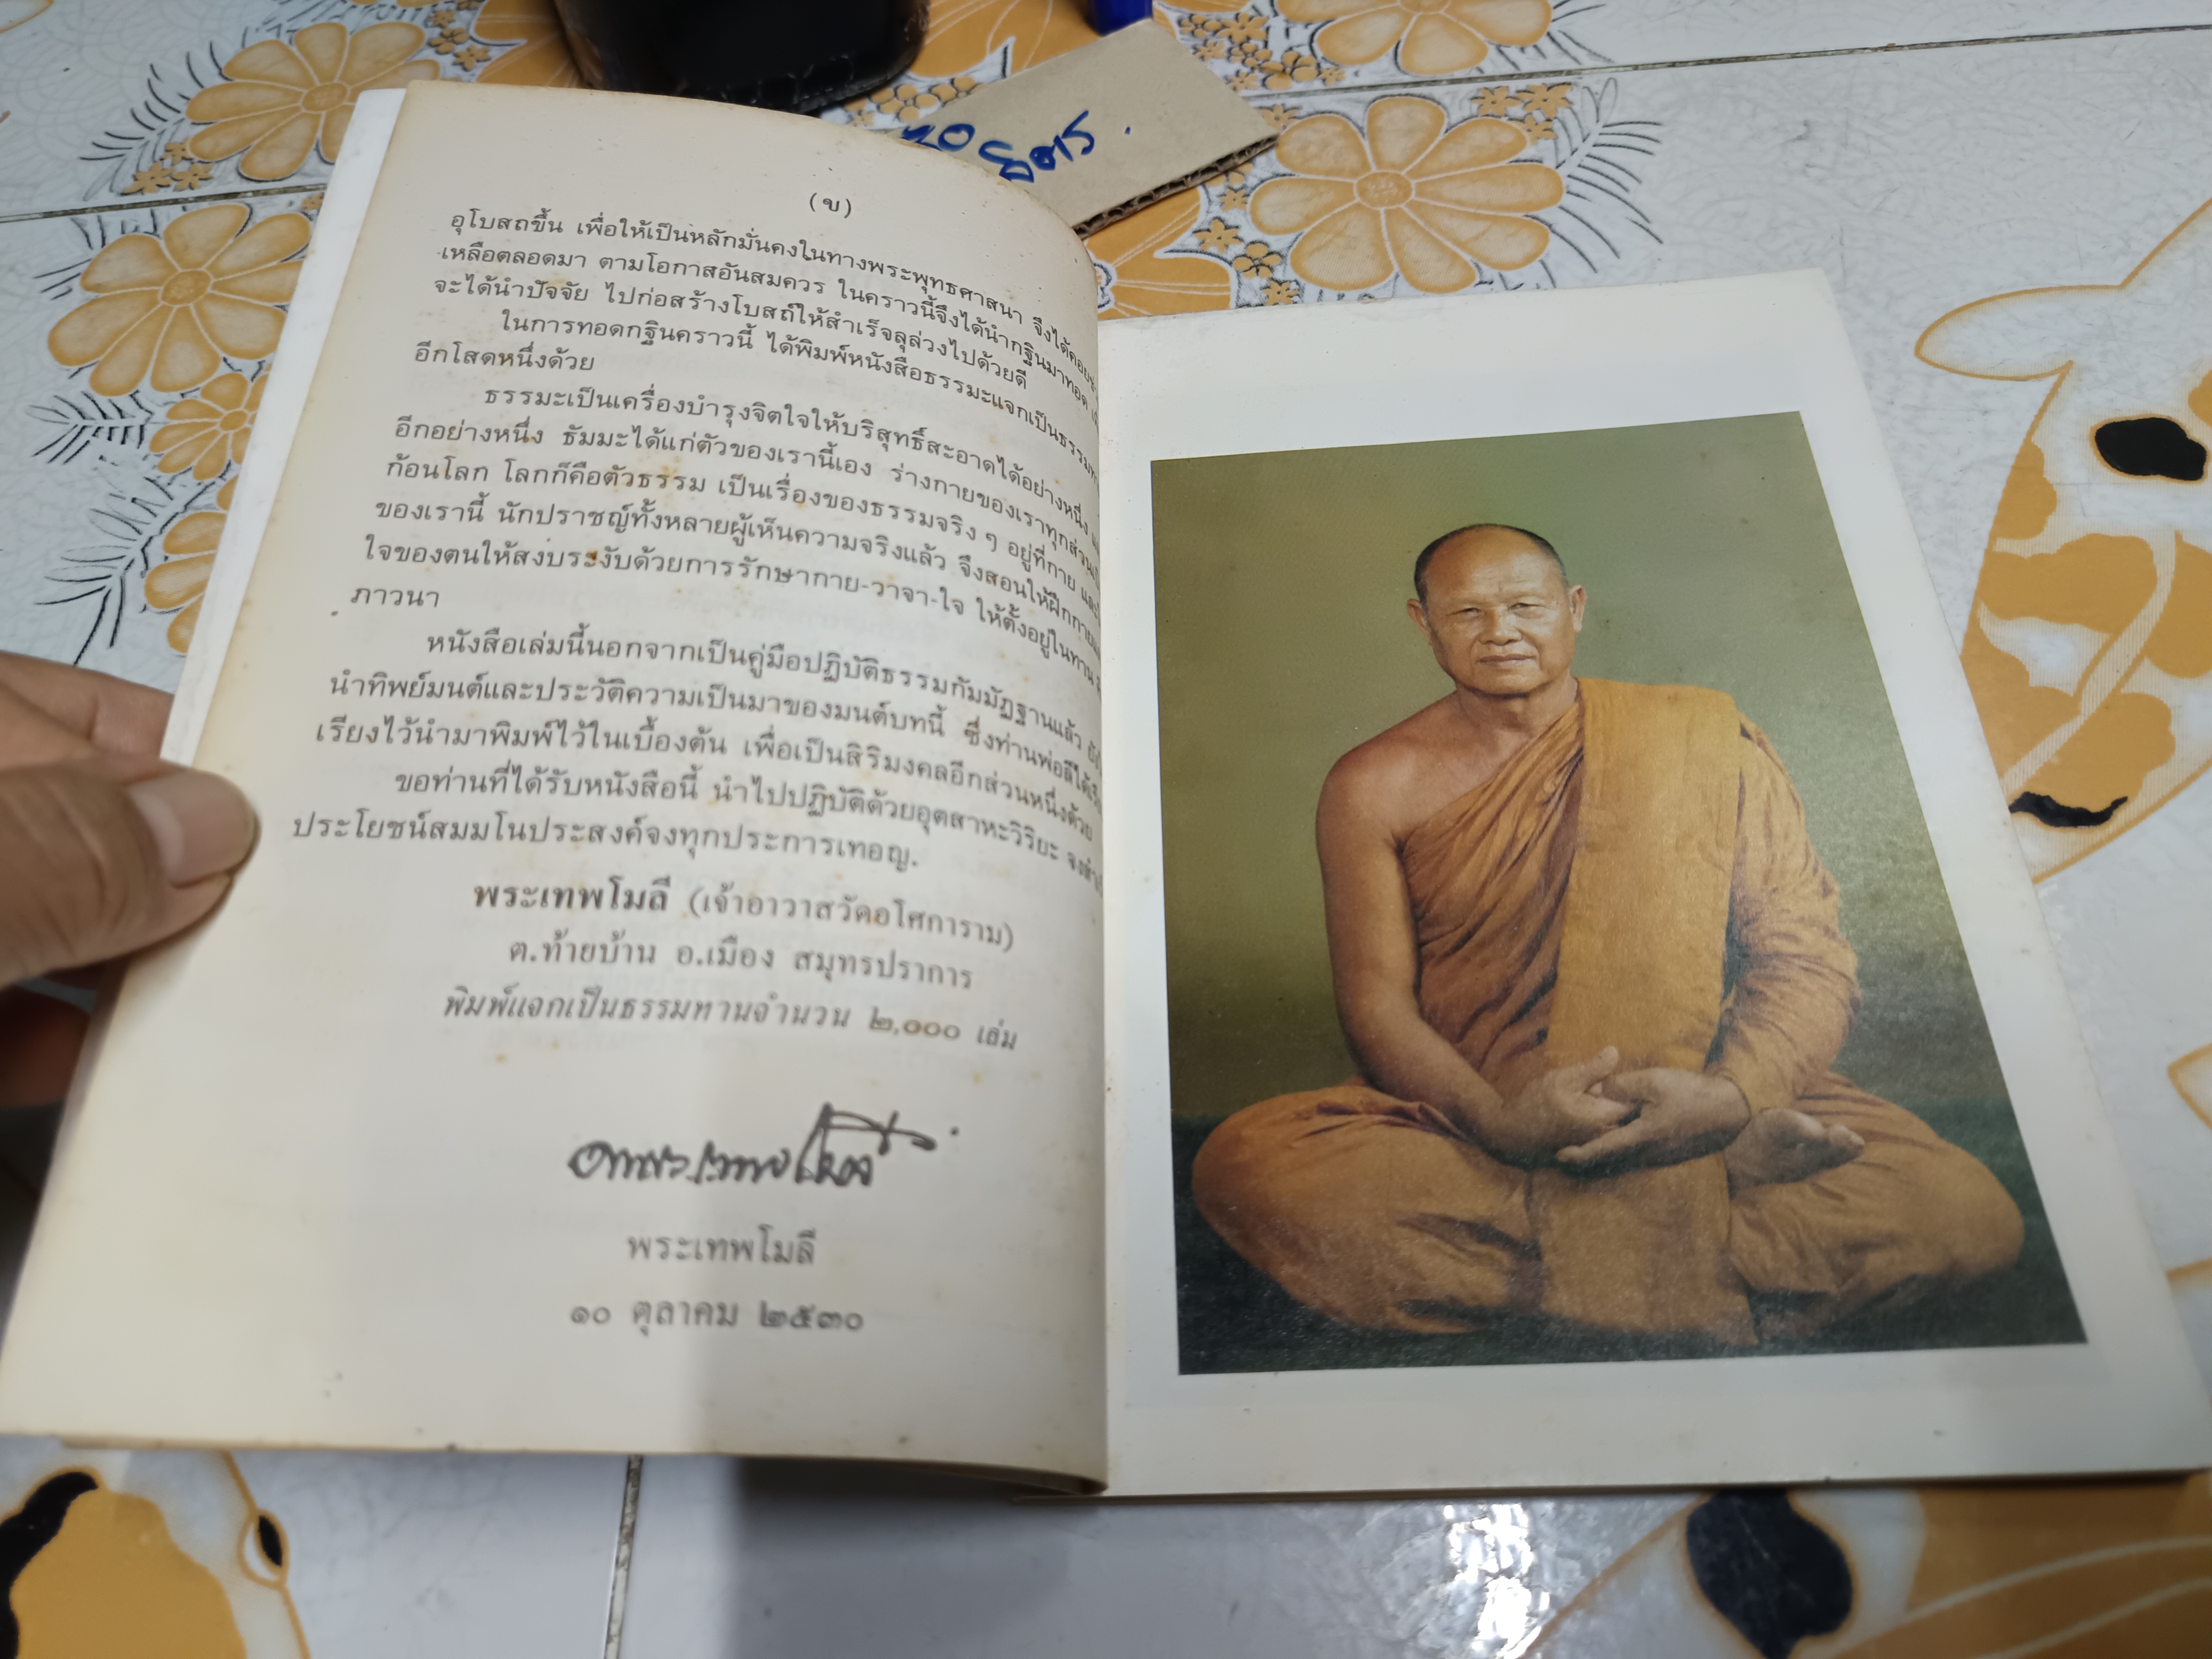 ๑๐
(ข)
อุโบสถขึ้น เพื่อให้เป็นหลักมั่นคงในทางพระพุทธศาสนา จึงได้คอย
เหลือตลอดมา ตามโอกาสอันสมควร ในคราวนี้จึงได้นำกฐินมาทอด
จะได้นำปัจจัย ไปก่อสร้างโบสถ์ให้สำเร็จลุล่วงไปด้วยดี
ในการทอดกฐินคราวนี้ ได้พิมพ์หนังสือธรรมะแจกเป็นธรรมทาน
อีกโสดหนึ่งด้วย
ธรรมะเป็นเครื่องบำรุงจิตใจให้บริสุทธิ์สะอาดได้อย่างหนึ่ง
อีกอย่างหนึ่ง ธัมมะได้แก่ตัวของเรานี้เอง ร่างกายของเราทุกส่วน
ก้อนโลก โลกก็คือตัวธรรม เป็นเรื่องของธรรมจริง ๆ อยู่ที่กาย และ
ของเรานี้ นักปราชญ์ทั้งหลายผู้เห็นความจริงแล้ว จึงสอนให้ฝึกกาย
ใจของตนให้สงบระงับด้วยการรักษากาย-วาจา-ใจ ให้ตั้งอยู่ในทาน
ภาวนา
หนังสือเล่มนี้นอกจากเป็นคู่มือปฏิบัติธรรมกัมมัฏฐานแล้ว
นำทิพย์มนต์และประวัติความเป็นมาของมนต์บทนี้ ซึ่งท่านพ่อลีได้
เรียงไว้นำมาพิมพ์ไว้ในเบื้องต้น เพื่อเป็นสิริมงคลอีกส่วนหนึ่งด้วย
ขอท่านที่ได้รับหนังสือนี้ นำไปปฏิบัติด้วยอุตสาหะวิริยะ
ประโยชน์สมมโนประสงค์จงทุกประการเทอญ.
พระเทพโมลี (เจ้าอาวาสวัดอโศการาม)
ต.ท้ายบ้าน อ.เมือง สมุทรปราการ
พิมพ์แจกเป็นธรรมทานจำนวน ๒,๐๐๐ เล่ม
พระเทพโมลี
๑๐ ตุลาคม ๒๕๓๐